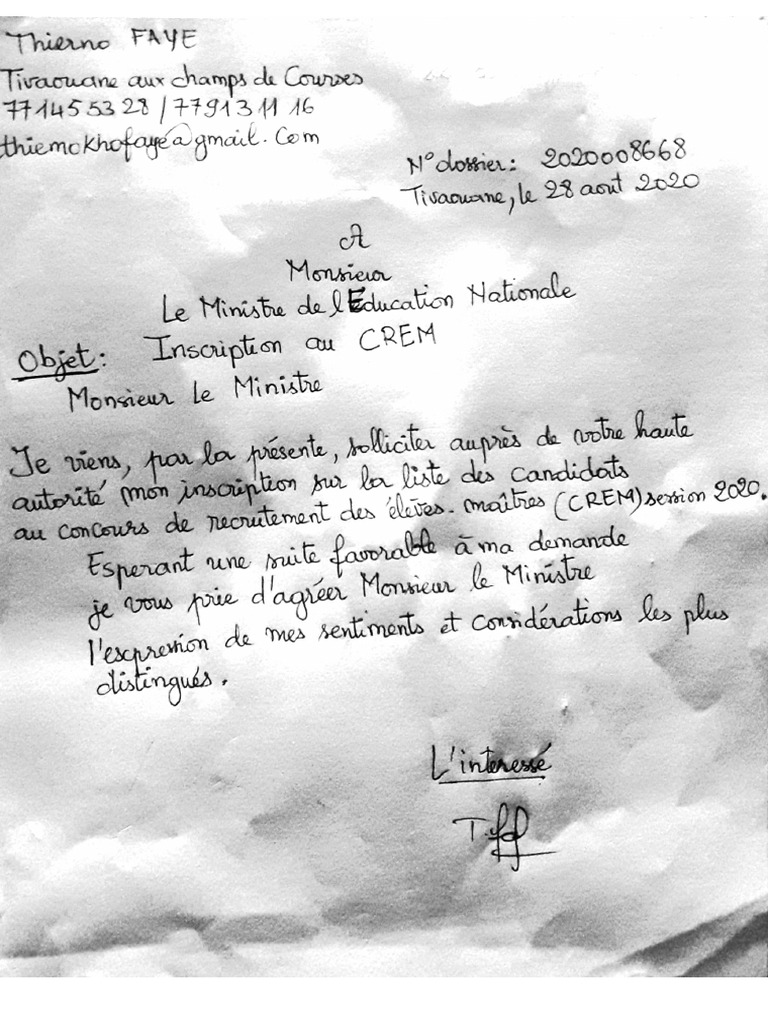 Thierno FAYE
Tivaouane aux champs de Courses
77 145 53 28 / 77 913 11 16
thiernokhofaye@gmail.Com
N° dossier: 2020008668
Tivaouane, le 28 aout 2020
A
Monsieur
Le Ministre de lEducation Nationale
Objet: Inscription au CREM
Monsieur Le Ministre
Je viens, par la présente, solliciter auprès de votre haute
autorité mon inscription sur la liste des candidats
au concours de recrutement des élèves-maîtres (CREM) session 2020.
Esperant une suite favorable à ma demande
je vous prie d'agréer Monsieur le Ministre
l'expression de mes sentiments et considérations les plus
distingués.
L'interessé